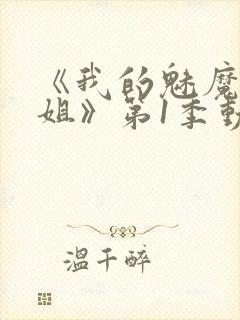 《我的魅魔
姐》第1季動
温千醉